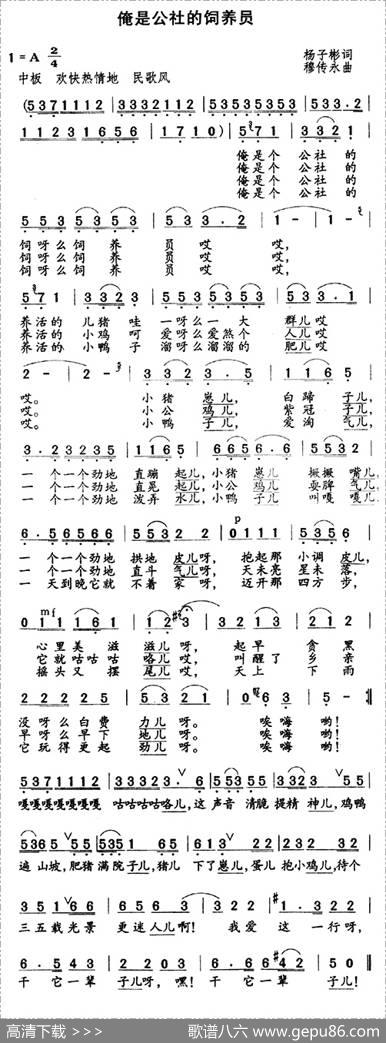 俺是公社的饲养员
1=A 2/4
杨子彬词
中板 欢快热情地 民歌风
穆传永曲
(5371112 | 3332112 | 53535353 | 533.2 |
1123 1656 | 1710) | 5 71 | 3321 |
俺是个 公社的
俺是个 公社的
俺是个 公社的
俺是个 公社的
553 5353 | 53 3.2 | 1 - | 1 - |
饲呀么饲养 员哎 哎,
饲呀么饲养 员哎 哎,
饲呀么饲养 员哎 哎,
5 71 | 3323 | 553 5353 | 533.1 |
养活的 儿猪哇 一呀么一大 群儿哎
养活的 小鸡呵 爱呀么爱煞个 人儿哎
养活的 小鸭子 溜呀么溜溜的 肥儿哎
2 - | 2 - | 3 32 3.5 | 1165 |
哎。 小猪崽儿, 白蹄子儿,
哎。 小公鸡儿, 紫冠子儿,
哎。 小鸭子儿, 爱洵气儿,
3.2 3235 | 1165 | 6656.6 | 5532 |
一个一个劲地 直蹦起儿, 小猪崽儿 搌搌嘴儿,
一个一个劲地 直晃起儿, 小公鸡儿 耍脾气儿,
一个一个劲地 泼弄水儿, 小鸭子儿 叫嘎嘎儿,
6.5 6566 | 553 2 2 | 0111 | 5356 |
p
一个一个劲地 拱地皮儿呀, 抱起那 小调皮儿,
一个一个劲地 直斗气儿呀, 天未亮 星未落,
一天到晚它就 不着家呀, 迈开那 四方步,
mf
心里美滋 滋儿呀, 起早贪黑
它就咕咕咕 咯儿哎, 叫醒了乡亲
摇头又摆 尾儿哎, 天上下雨
2 2 2 25 | 5 3 2 2 | 0 6 3 | 5 - :||
没呀么白费 力儿呀。 唉嗨 哟!
早呀么早下 地儿呀。 唉嗨 哟!
它玩得更起 劲儿呀。 唉嗨 哟!
嘎嘎嘎嘎嘎嘎嘎 咕咕咕咕咯儿, 这声音 清脆提精神儿, 鸡鸭
遍山坡, 肥猪满院子儿, 猪儿 下了崽儿, 蛋儿 抱小鸡儿, 待个
三五载光景 更迷人儿啊! 我爱这一行呀,
干它一辈 子儿呀, 嘿! 干它一辈 子儿!
高清下载 >>>
歌谱八六 www.gepu86.com